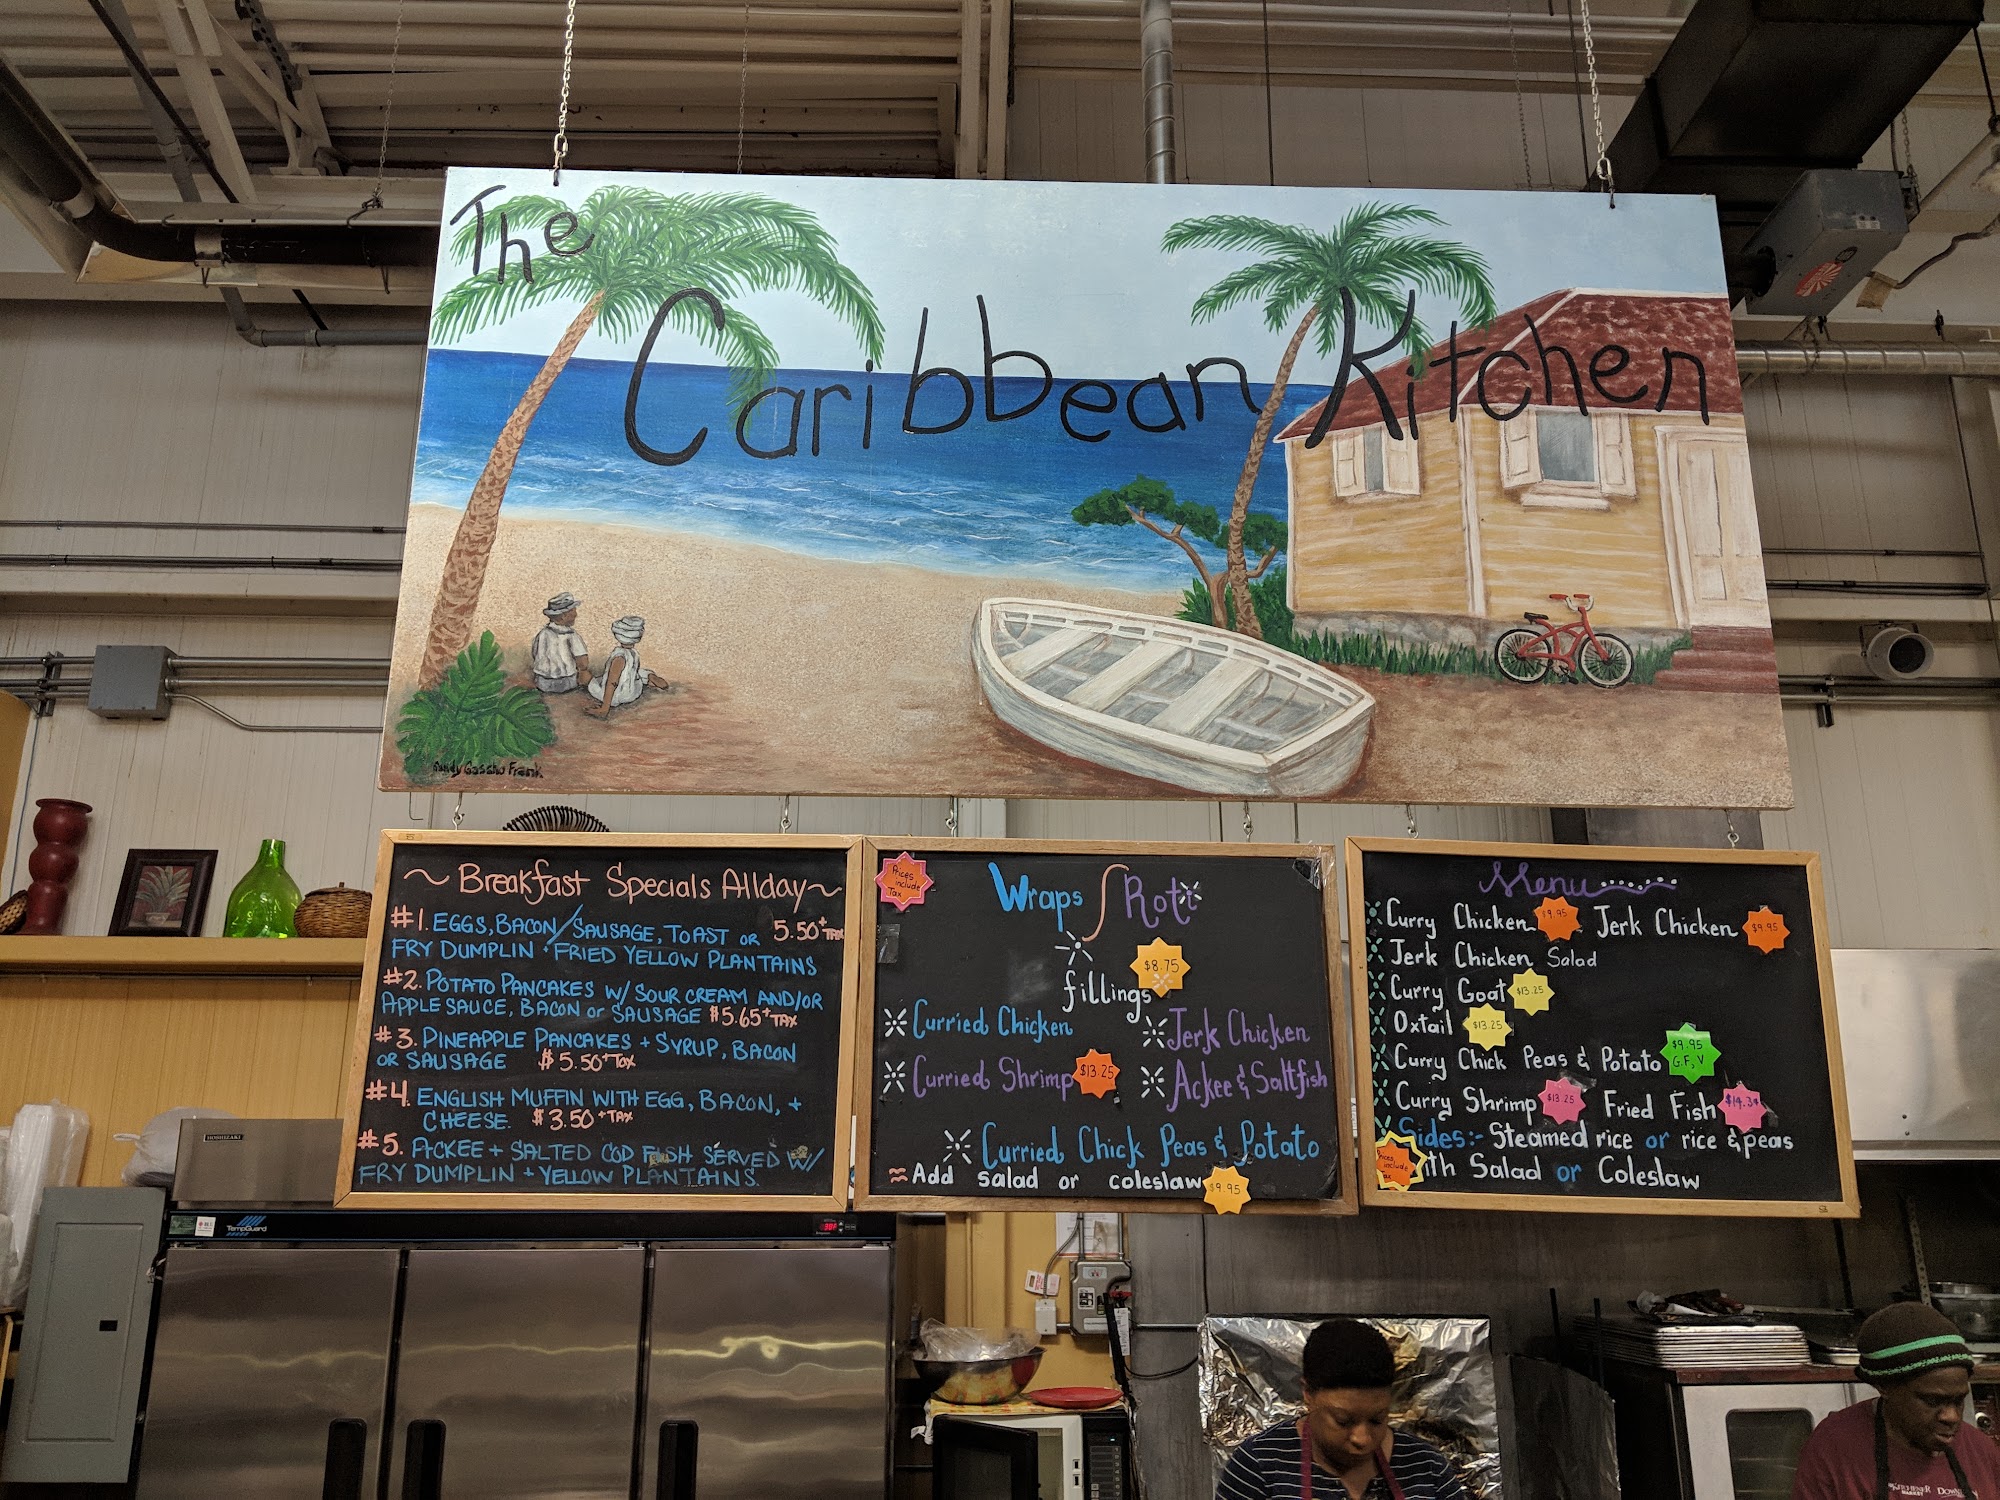 The
Caribbean Kitchen
~ Breakfast Specials Allday ~
#1. EGGS, BACON/SAUSAGE, TOAST OR 5.50 + TAX
FRY DUMPLIN + FRIED YELLOW PLANTAINS
#2. POTATO PANCAKES W/ SOUR CREAM AND/OR
APPLESAUCE, BACON or SAUSAGE $5.65 + TAX
#3. PINEAPPLE PANCAKES + SYRUP, BACON
OR SAUSAGE $5.50 + TAX
#4. ENGLISH MUFFIN WITH EGG, BACON, +
CHEESE. $3.50 + TAX
#5. ACKEE + SALTED COD FISH SERVED W/
FRY DUMPLIN + YELLOW PLANTAINS.
Prices
include
Tax
Wraps / Roti
$8.75
fillings
Curried Chicken Jerk Chicken
Curried Shrimp $13.25 Ackee & Saltfish
Curried Chick Peas & Potato
≈ Add salad or coleslaw $9.95
Menu
Curry Chicken $9.95 Jerk Chicken $9.95
Jerk Chicken Salad
Curry Goat $13.25
Oxtail $13.25
Curry Chick Peas & Potato $9.95
G.F, V
Curry Shrimp $13.25 Fried Fish
Sides:- Steamed rice or rice & peas
with Salad or Coleslaw
Prices
include
Tax
HOSHIZAKI
TempGuard